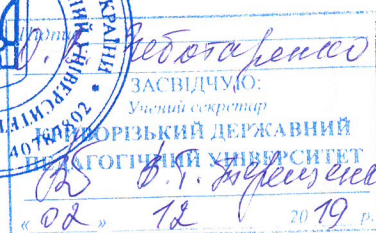 Підпис
О. В. Чеботаренко
ЗАСВІДЧУЮ:
Учений секретар
КРИВОРІЗЬКИЙ ДЕРЖАВНИЙ
ПЕДАГОГІЧНИЙ УНІВЕРСИТЕТ
В. Г. Терещенко
« 02 » 12 2019 р.
УКРАЇНИ *
НИЙ УНІВЕРСИТЕТ
40787802